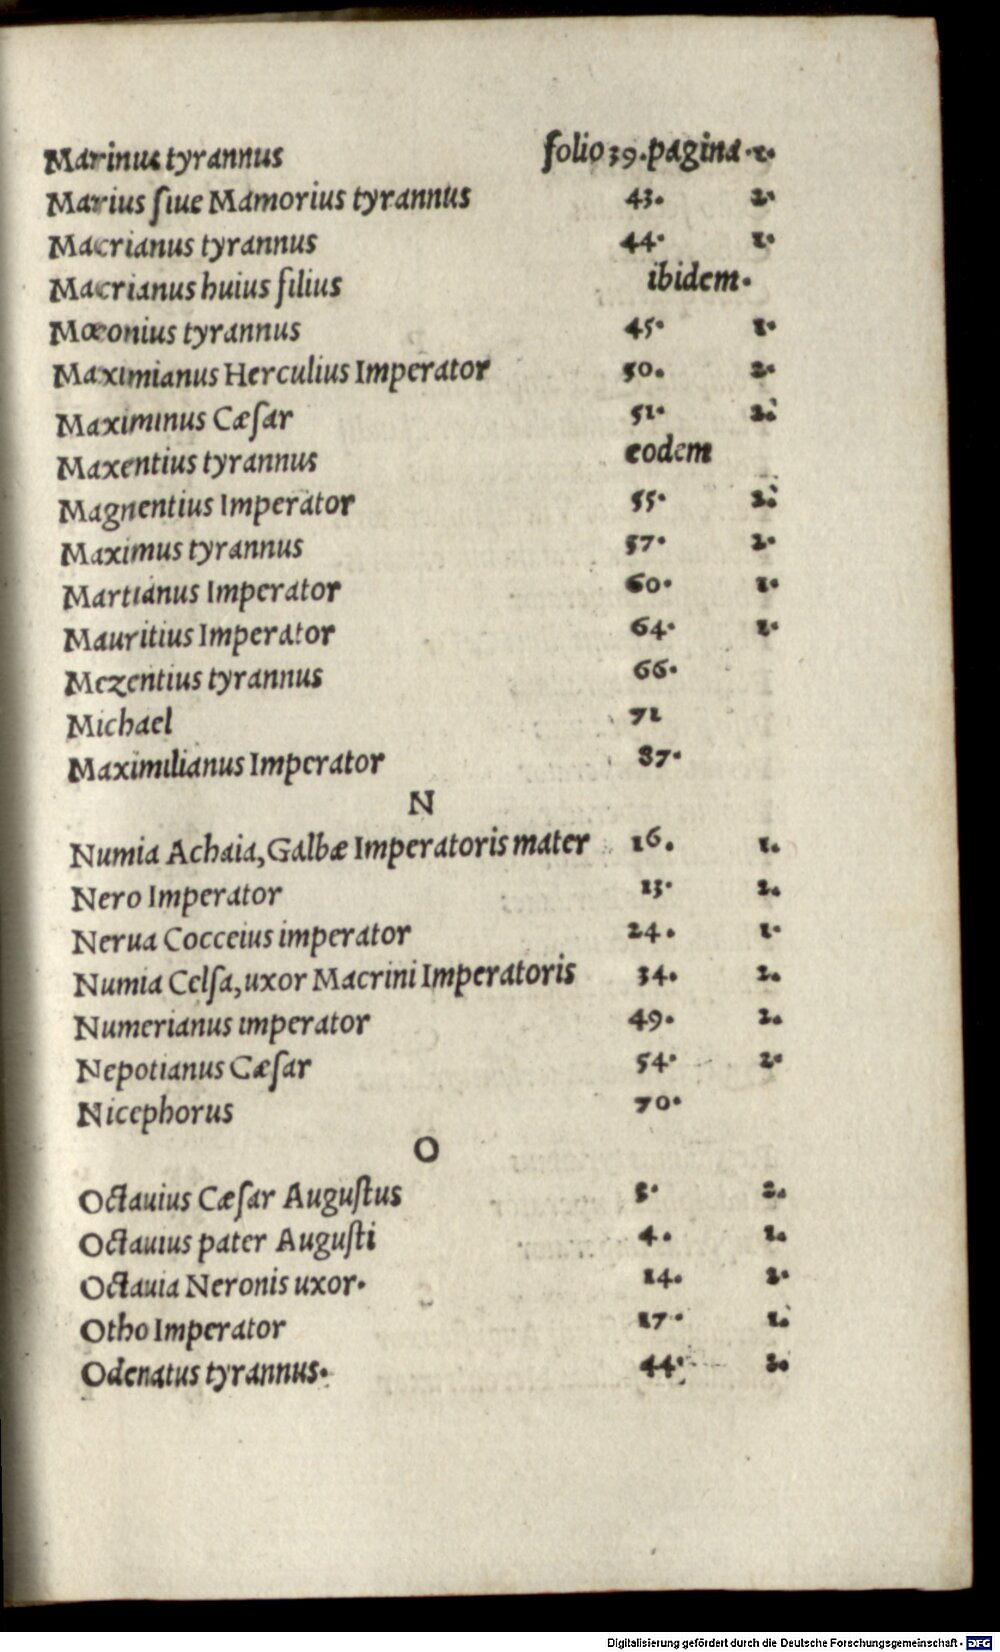 Marinus tyrannus folio 39. pagina. 1.
Marius ſiue Mamorius tyrannus 43. 2.
Macrianus tyrannus 44. 1.
Macrianus huius filius ibidem.
Mœonius tyrannus 45. 1.
Maximianus Herculius Imperator 50. 2.
Maximinus Cæſar 51. 2.
Maxentius tyrannus eodem
Magnentius Imperator 55. 2.
Maximus tyrannus 57. 2.
Martianus Imperator 60. 1.
Mauritius Imperator 64. 1.
Mezentius tyrannus 66.
Michael 71
Maximilianus Imperator 87.
N
Numia Achaia, Galbæ Imperatoris mater 16. 1.
Nero Imperator 13. 2.
Nerua Cocceius imperator 24. 1.
Numia Celſa, uxor Macrini Imperatoris 34. 2.
Numerianus imperator 49. 2.
Nepotianus Cæſar 54. 2.
Nicephorus 70.
O
Octauius Cæſar Auguſtus 5. 2.
Octauius pater Auguſti 4. 1.
Octauia Neronis uxor. 14. 2.
Otho Imperator 17. 1.
Odenatus tyrannus. 44. 2.
Digitalisierung gefördert durch die Deutsche Forschungsgemeinschaft - DFG